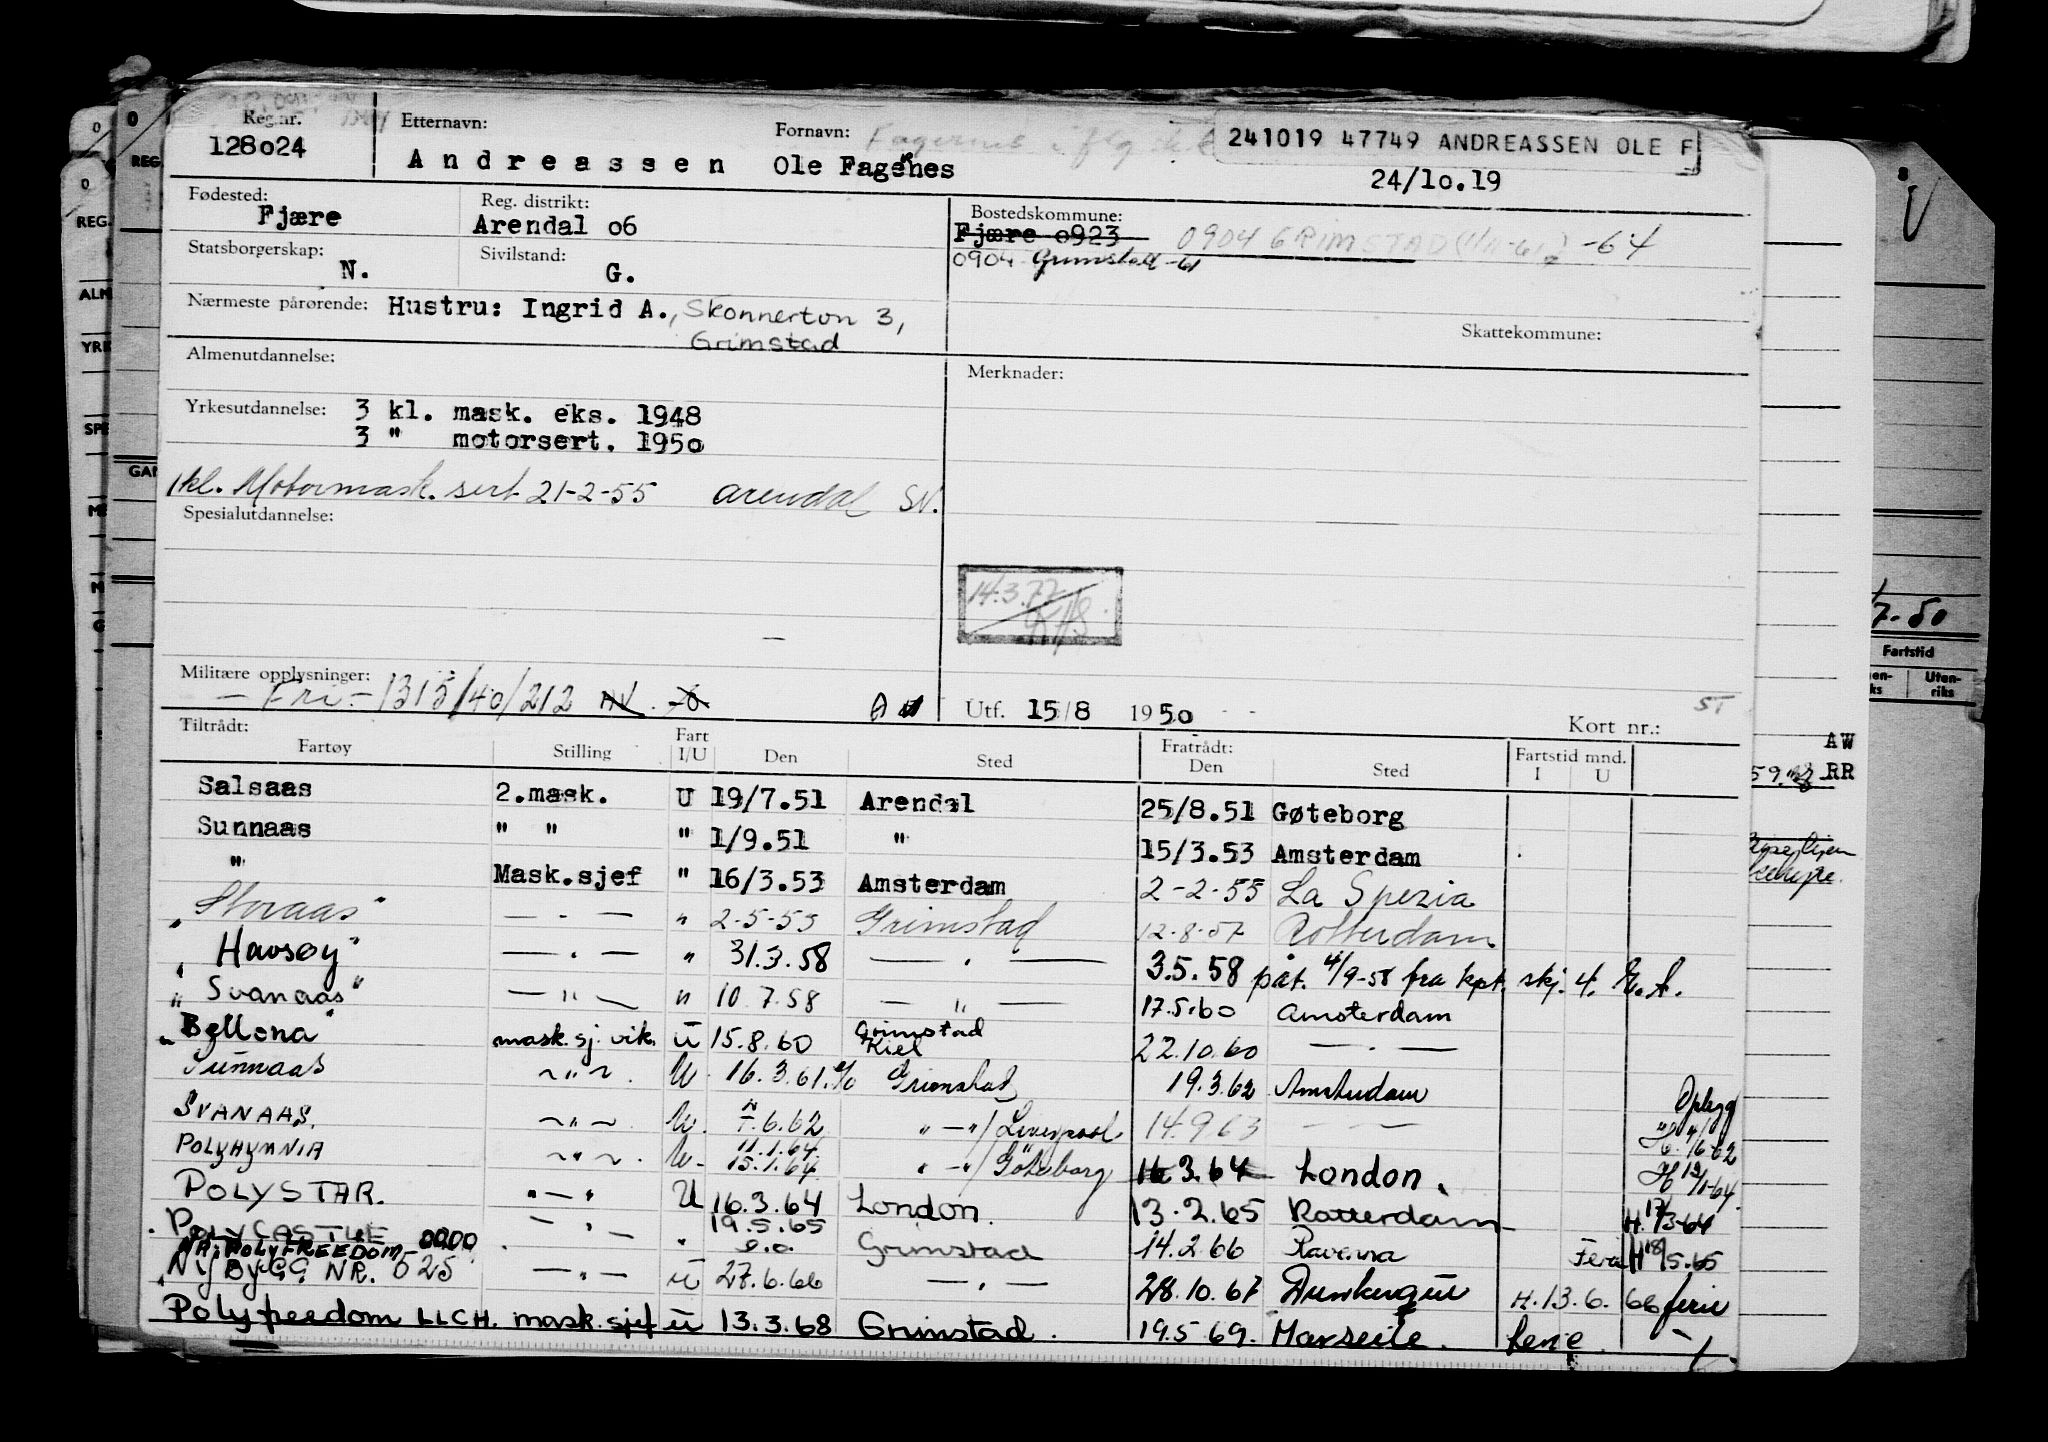 Reg.nr.
128o24
Etternavn:
Andreassen
Fornavn:
Ole Fagernes
241019 47749 ANDREASSEN OLE F
24/1o.19
Fødested:
Fjære
Reg. distrikt:
Arendal o6
Bostedskommune:
Fjære o923
0904 GRIMSTAD -64
0904 Grimstad -61
Statsborgerskap:
N.
Sivilstand:
G.
Nærmeste pårørende: Hustru: Ingrid A., Skonnertvn 3,
Grimstad
Skattekommune:
Almenutdannelse:
Merknader:
Yrkesutdannelse: 3 kl. mask. eks. 1948
3 " motorsert. 195o
1kl. Motormask. sert 21-2-55 Arendal SN.
Spesialutdannelse:
14.3.77
Militære opplysninger:
- Fri - 1315/40/212
Utf. 15/8 195o
Kort nr.:
ST
Tiltrådt:
Fartøy Stilling Fart I/U Den Sted
Fratrådt:
Den Sted Fartstid mnd.
I U
Salsaas 2.mask. U 19/7.51 Arendal 25/8.51 Gøteborg
Sunnaas " " " 1/9.51 " 15/3.53 Amsterdam
" Mask.sjef " 16/3.53 Amsterdam 2-2-55 La Spezia
"Storaas" — . — " 2-5-55 Grimstad 12.8.57 Rotterdam
"Havsøy" — . — " 31.3.58 — . — 3.5.58 påt. 4/9-58 fra kpt. skj. 4.
"Svanaas" — " — " 10.7.58 — " — 17.5.60 Amsterdam
"Bellona" mask.sj. vik. U 15.8.60 Grimstad Kiel 22.10.60 — . —
Sunnaas ~ " ~ . U. 16.3.61. Grimstad 19.3.62 Amsterdam
Opbygg
SVANAAS. ~ " ~ . U. 7.6.62 " — "/Liverpool. 14.9.63 — —
POLYHYMNIA ~ " ~ . U. 11.1.64 15.1.64 " — "/Göteborg 16.3.64 London.
POLYSTAR. " — " U 16.3.64 London. 13.2.65 Rotterdam
H. 17/3-64
POLYCASTLE 0000 — " — " 19.5.65 Grimstad 14.2.66 Ravenna Ferie H 18/5.65
POLYFREEDOM
NYBYGG NR. 525 — " — U 27.6.66 — " — 28.10.67 Dunkerque H.13.6.66 ferie
Polyfreedom LLCH. mask.sjef U 13.3.68 Grimstad. 19.5 69. Marseile. ferie
REG.
REG.
ALM
YRK
SPE
GAN
7-50
Fartstid
Uten-
riks
AW
RR